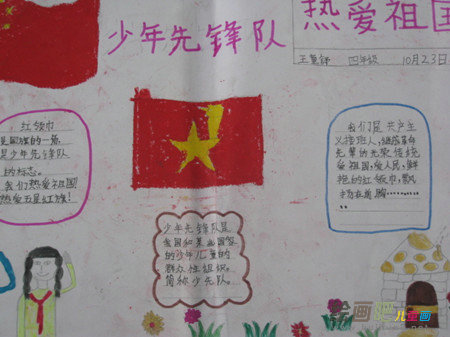 少年先锋队
热爱祖国
四年级 10月23日
红领巾
是国旗的一角,
是少年先锋队
的标志。
我们热爱祖国
热爱五星红旗!
我们是共产主
义接班人,继承革命
先辈的光荣传统
爱祖国,爱人民,鲜
艳的红领巾,飘
扬在前胸……
少年先锋队是
我国和某些国家
的少年儿童的
群众性组织,
简称少先队。
绘画吧 儿童画